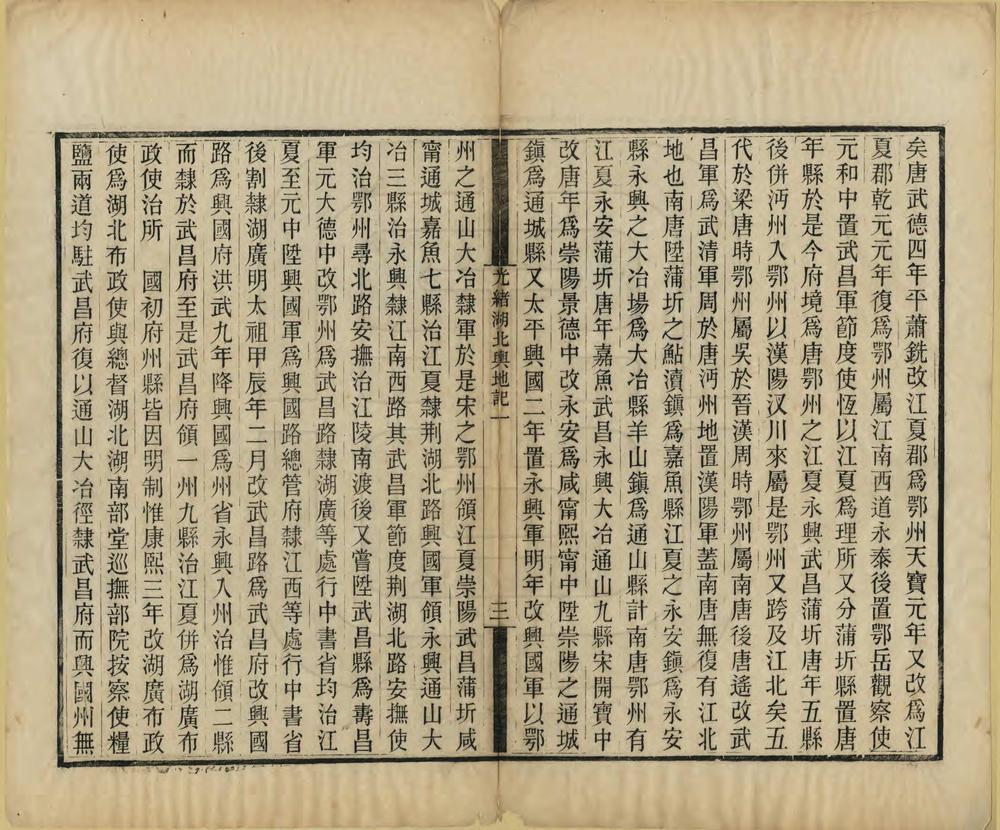 矣唐武德四年平蕭銑改江夏郡爲鄂州天寶元年又改爲江
夏郡乾元元年復爲鄂州屬江南西道永泰後置鄂岳觀察使
元和中置武昌軍節度使恆以江夏爲理所又分蒲圻縣置唐
年縣於是今府境爲唐鄂州之江夏永興武昌蒲圻唐年五縣
後併沔州入鄂州以漢陽汊川來屬是鄂州又跨及江北矣五
代於梁唐時鄂州屬吳於晉漢周時鄂州屬南唐後唐遙改武
昌軍爲武清軍周於唐沔州地置漢陽軍蓋南唐無復有江北
地也南唐陞蒲圻之鮎瀆鎭爲嘉魚縣江夏之永安鎭爲永安
縣永興之大冶場爲大冶縣羊山鎭爲通山縣計南唐鄂州有
江夏永安蒲圻唐年嘉魚武昌永興大冶通山九縣宋開寶中
改唐年爲崇陽景德中改永安爲咸甯熙甯中陞崇陽之通城
鎭爲通城縣又太平興國二年置永興軍明年改興國軍以鄂
光緒湖北輿地記一
三
州之通山大冶隸軍於是宋之鄂州領江夏崇陽武昌蒲圻咸
甯通城嘉魚七縣治江夏隸荆湖北路興國軍領永興通山大
冶三縣治永興隸江南西路其武昌軍節度荆湖北路安撫使
均治鄂州尋北路安撫治江陵南渡後又嘗陞武昌縣爲壽昌
軍元大德中改鄂州爲武昌路隸湖廣等處行中書省均治江
夏至元中陞興國軍爲興國路總管府隸江西等處行中書省
後割隸湖廣明太祖甲辰年二月改武昌路爲武昌府改興國
路爲興國府洪武九年降興國爲州省永興入州治惟領二縣
而隸於武昌府至是武昌府領一州九縣治江夏併爲湖廣布
政使治所　國初府州縣皆因明制惟康熙三年改湖廣布政
使爲湖北布政使與總督湖北湖南部堂巡撫部院按察使糧
鹽兩道均駐武昌府復以通山大冶徑隸武昌府而興國州無